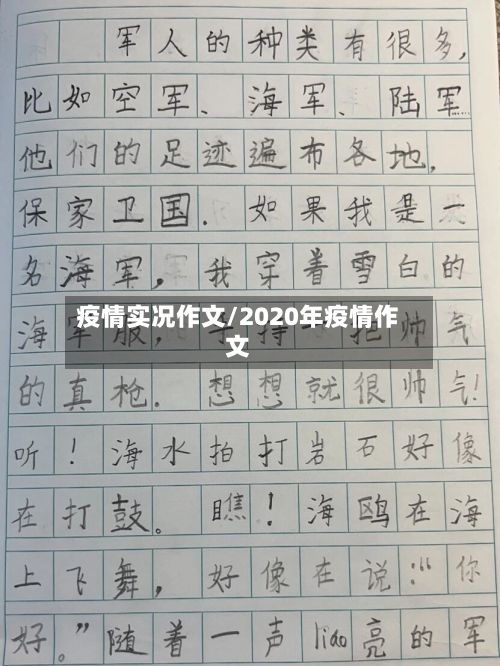 军人的种类有很多,
比如空军、海军、陆军
他们的足迹遍布各地,
保家卫国.如果我是一
名海军,我穿着雪白的
海军服,手持一把帅气
疫情实况作文/2020年疫情作
文
的真枪.想想就很帅气!
听!海水拍打岩石好像
在打鼓。瞧!海鸥在海
上飞舞,好像在说:“你
好。”随着一声liáo亮的军